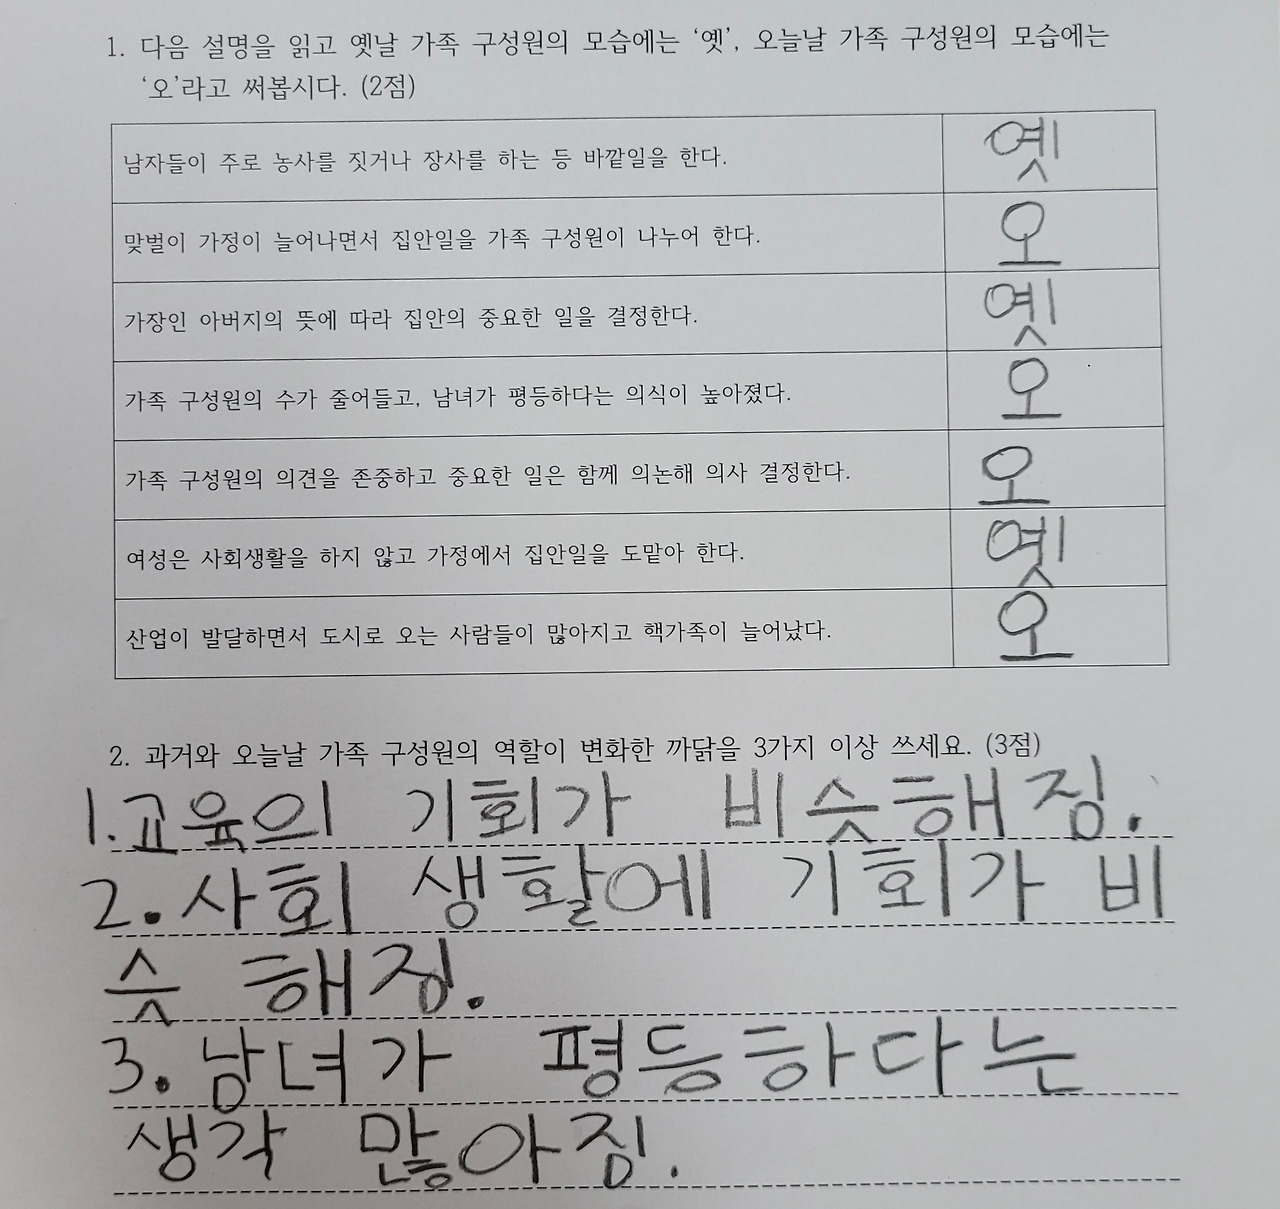 1. 다음 설명을 읽고 옛날 가족 구성원의 모습에는 ‘옛’, 오늘날 가족 구성원의 모습에는
‘오’라고 써봅시다. (2점)
남자들이 주로 농사를 짓거나 장사를 하는 등 바깥일을 한다. 옛
맞벌이 가정이 늘어나면서 집안일을 가족 구성원이 나누어 한다. 오
가장인 아버지의 뜻에 따라 집안의 중요한 일을 결정한다. 옛
가족 구성원의 수가 줄어들고, 남녀가 평등하다는 의식이 높아졌다. 오
가족 구성원의 의견을 존중하고 중요한 일은 함께 의논해 의사 결정한다. 오
여성은 사회생활을 하지 않고 가정에서 집안일을 도맡아 한다. 옛
산업이 발달하면서 도시로 오는 사람들이 많아지고 핵가족이 늘어났다. 오
2. 과거와 오늘날 가족 구성원의 역할이 변화한 까닭을 3가지 이상 쓰세요. (3점)
1. 교육의 기회가 비슷해짐.
2. 사회 생활에 기회가 비
슷 해짐.
3. 남녀가 평등하다는
생각 많아짐.